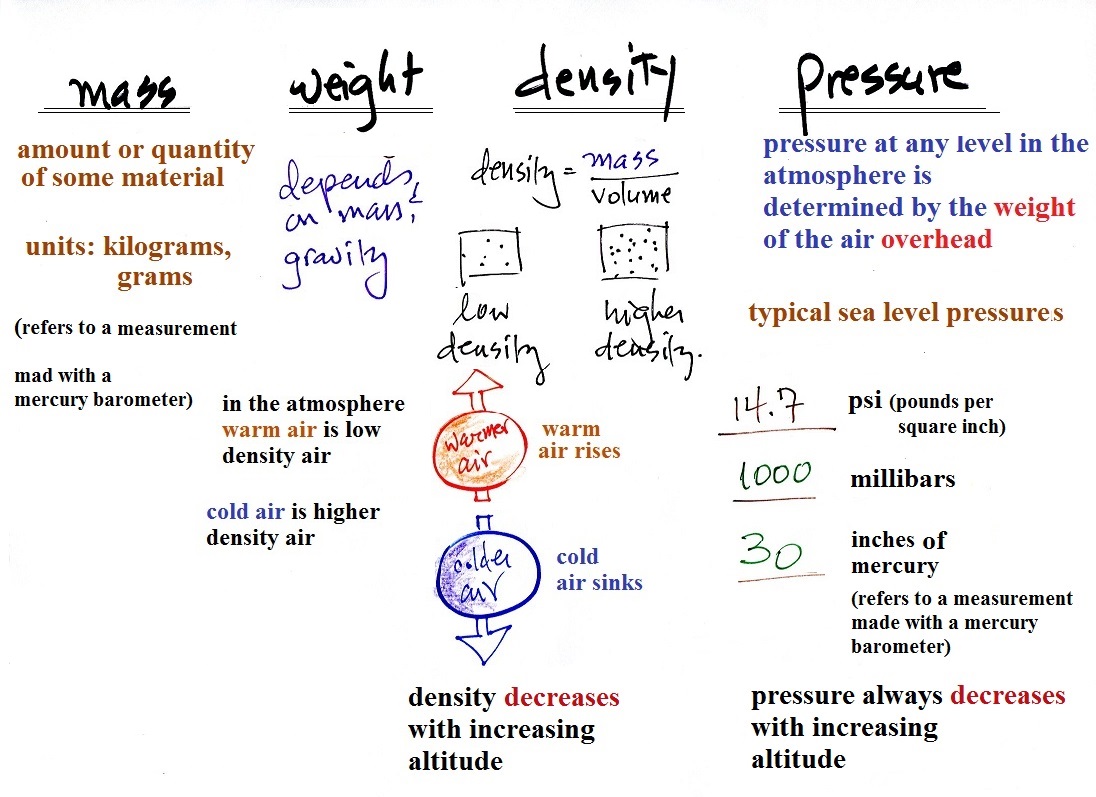 mass
amount or quantity
of some material
units: kilograms,
grams
(refers to a measurement
mad with a
mercury barometer)
weight
depends
on mass &
gravity
density
density = mass
volume
low
density
higher
density.
in the atmosphere
warm air is low
density air
cold air is higher
density air
warmer
air
warm
air rises
colder
air
cold
air sinks
density decreases
with increasing
altitude
Pressure
pressure at any level in the
atmosphere is
determined by the weight
of the air overhead
typical sea level pressures
14.7 psi (pounds per
square inch)
1000 millibars
30 inches of
mercury
(refers to a measurement
made with a mercury
barometer)
pressure always decreases
with increasing
altitude